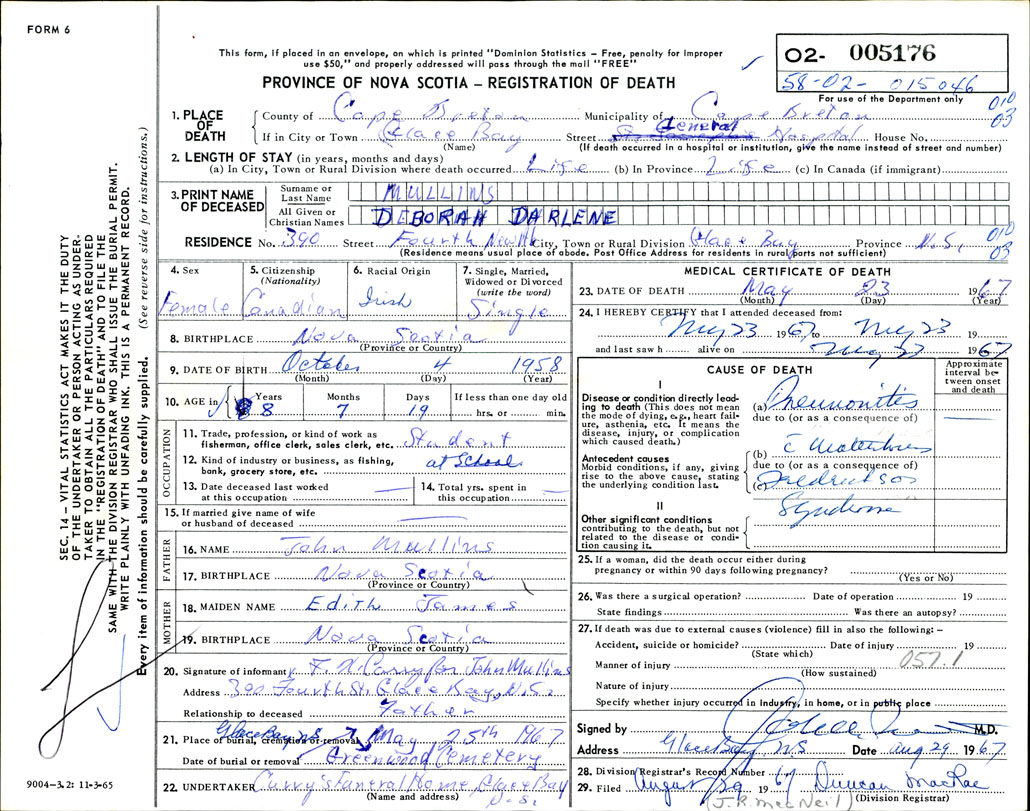 FORM 6
This form, if placed in an envelope, on which is printed "Dominion Statistics – Free, penalty for improper
use $50," and properly addressed will pass through the mail "FREE"
PROVINCE OF NOVA SCOTIA – REGISTRATION OF DEATH
O2- 005176
58-02- 015046
For use of the Department only
010
03
1. PLACE OF DEATH
County of Cape Breton Municipality of Cape Breton
If in City or Town Glace Bay Street General Hospital House No.
(Name) (If death occurred in a hospital or institution, give the name instead of street and number)
2. LENGTH OF STAY (in years, months and days)
(a) In City, Town or Rural Division where death occurred Life (b) In Province Life (c) In Canada (if immigrant)
3. PRINT NAME OF DECEASED
Surname or Last Name MULLINS
All Given or Christian Names DEBORAH DARLENE
RESIDENCE No. 390 Street Fourth City, Town or Rural Division Glace Bay Province N.S.
010
03
(Residence means usual place of abode. Post Office Address for residents in rural parts not sufficient)
4. Sex Female
5. Citizenship (Nationality) Canadian
6. Racial Origin Irish
7. Single, Married, Widowed or Divorced (write the word) Single
8. BIRTHPLACE Nova Scotia
(Province or Country)
9. DATE OF BIRTH October 4 1958
(Month) (Day) (Year)
10. AGE in Years Months Days If less than one day old
8 7 19 hrs. or min.
OCCUPATION
11. Trade, profession, or kind of work as fisherman, office clerk, sales clerk, etc. Student
12. Kind of industry or business, as fishing, bank, grocery store, etc. at School
13. Date deceased last worked at this occupation
14. Total yrs. spent in this occupation
15. If married give name of wife or husband of deceased
FATHER
16. NAME John Mullins
17. BIRTHPLACE Nova Scotia
(Province or Country)
MOTHER
18. MAIDEN NAME Edith James
19. BIRTHPLACE Nova Scotia
(Province or Country)
20. Signature of informant Curry for John Mullins
Address 390 Fourth St. Glace Bay, N.S.
Relationship to deceased Father
21. Place of burial, cremation or removal Glace Bay NS May 25th 1967
Date of burial or removal Greenwood Cemetery
22. UNDERTAKER Curry's Funeral Home, Glace Bay
(Name and address) N.S.
MEDICAL CERTIFICATE OF DEATH
23. DATE OF DEATH May 23 1967
(Month) (Day) (Year)
24. I HEREBY CERTIFY that I attended deceased from:
May 23 1967 to May 23 19
and last saw h alive on May 23 1967
CAUSE OF DEATH
Approximate interval between onset and death
I
Disease or condition directly leading to death (This does not mean the mode of dying, e.g., heart failure, asthenia, etc. It means the disease, injury, or complication which caused death.)
(a) Pneumonitis
due to (or as a consequence of)
Antecedent causes
Morbid conditions, if any, giving rise to the above cause, stating the underlying condition last.
(b) c Waterhouse
due to (or as a consequence of)
(c)
Syndrome
II
Other significant conditions
contributing to the death, but not related to the disease or condition causing it.
25. If a woman, did the death occur either during
pregnancy or within 90 days following pregnancy?
(Yes or No)
26. Was there a surgical operation? Date of operation 19
State findings Was there an autopsy?
27. If death was due to external causes (violence) fill in also the following: –
Accident, suicide or homicide? Date of injury 19
(State which)
057.1
Manner of injury
(How sustained)
Nature of injury
Specify whether injury occurred in Industry, in home, or in public place
Signed by M.D.
Address Glace Bay N.S. Date Aug 29 1967
28. Division Registrar's Record Number
29. Filed August 29 1967 Duncan MacRae
(J.R. MacNeil) (Division Registrar)
SEC. 14 – VITAL STATISTICS ACT MAKES IT THE DUTY
OF THE UNDERTAKER OR PERSON ACTING AS UNDER-
TAKER TO OBTAIN ALL THE PARTICULARS REQUIRED
IN THE "REGISTRATION OF DEATH" AND TO FILE THE
SAME WITH THE DIVISION REGISTRAR WHO SHALL ISSUE THE BURIAL PERMIT.
WRITE PLAINLY WITH UNFADING INK. THIS IS A PERMANENT RECORD.
Every item of information should be carefully supplied. (See reverse side for instructions.)
9004-3.2: 11-3-65